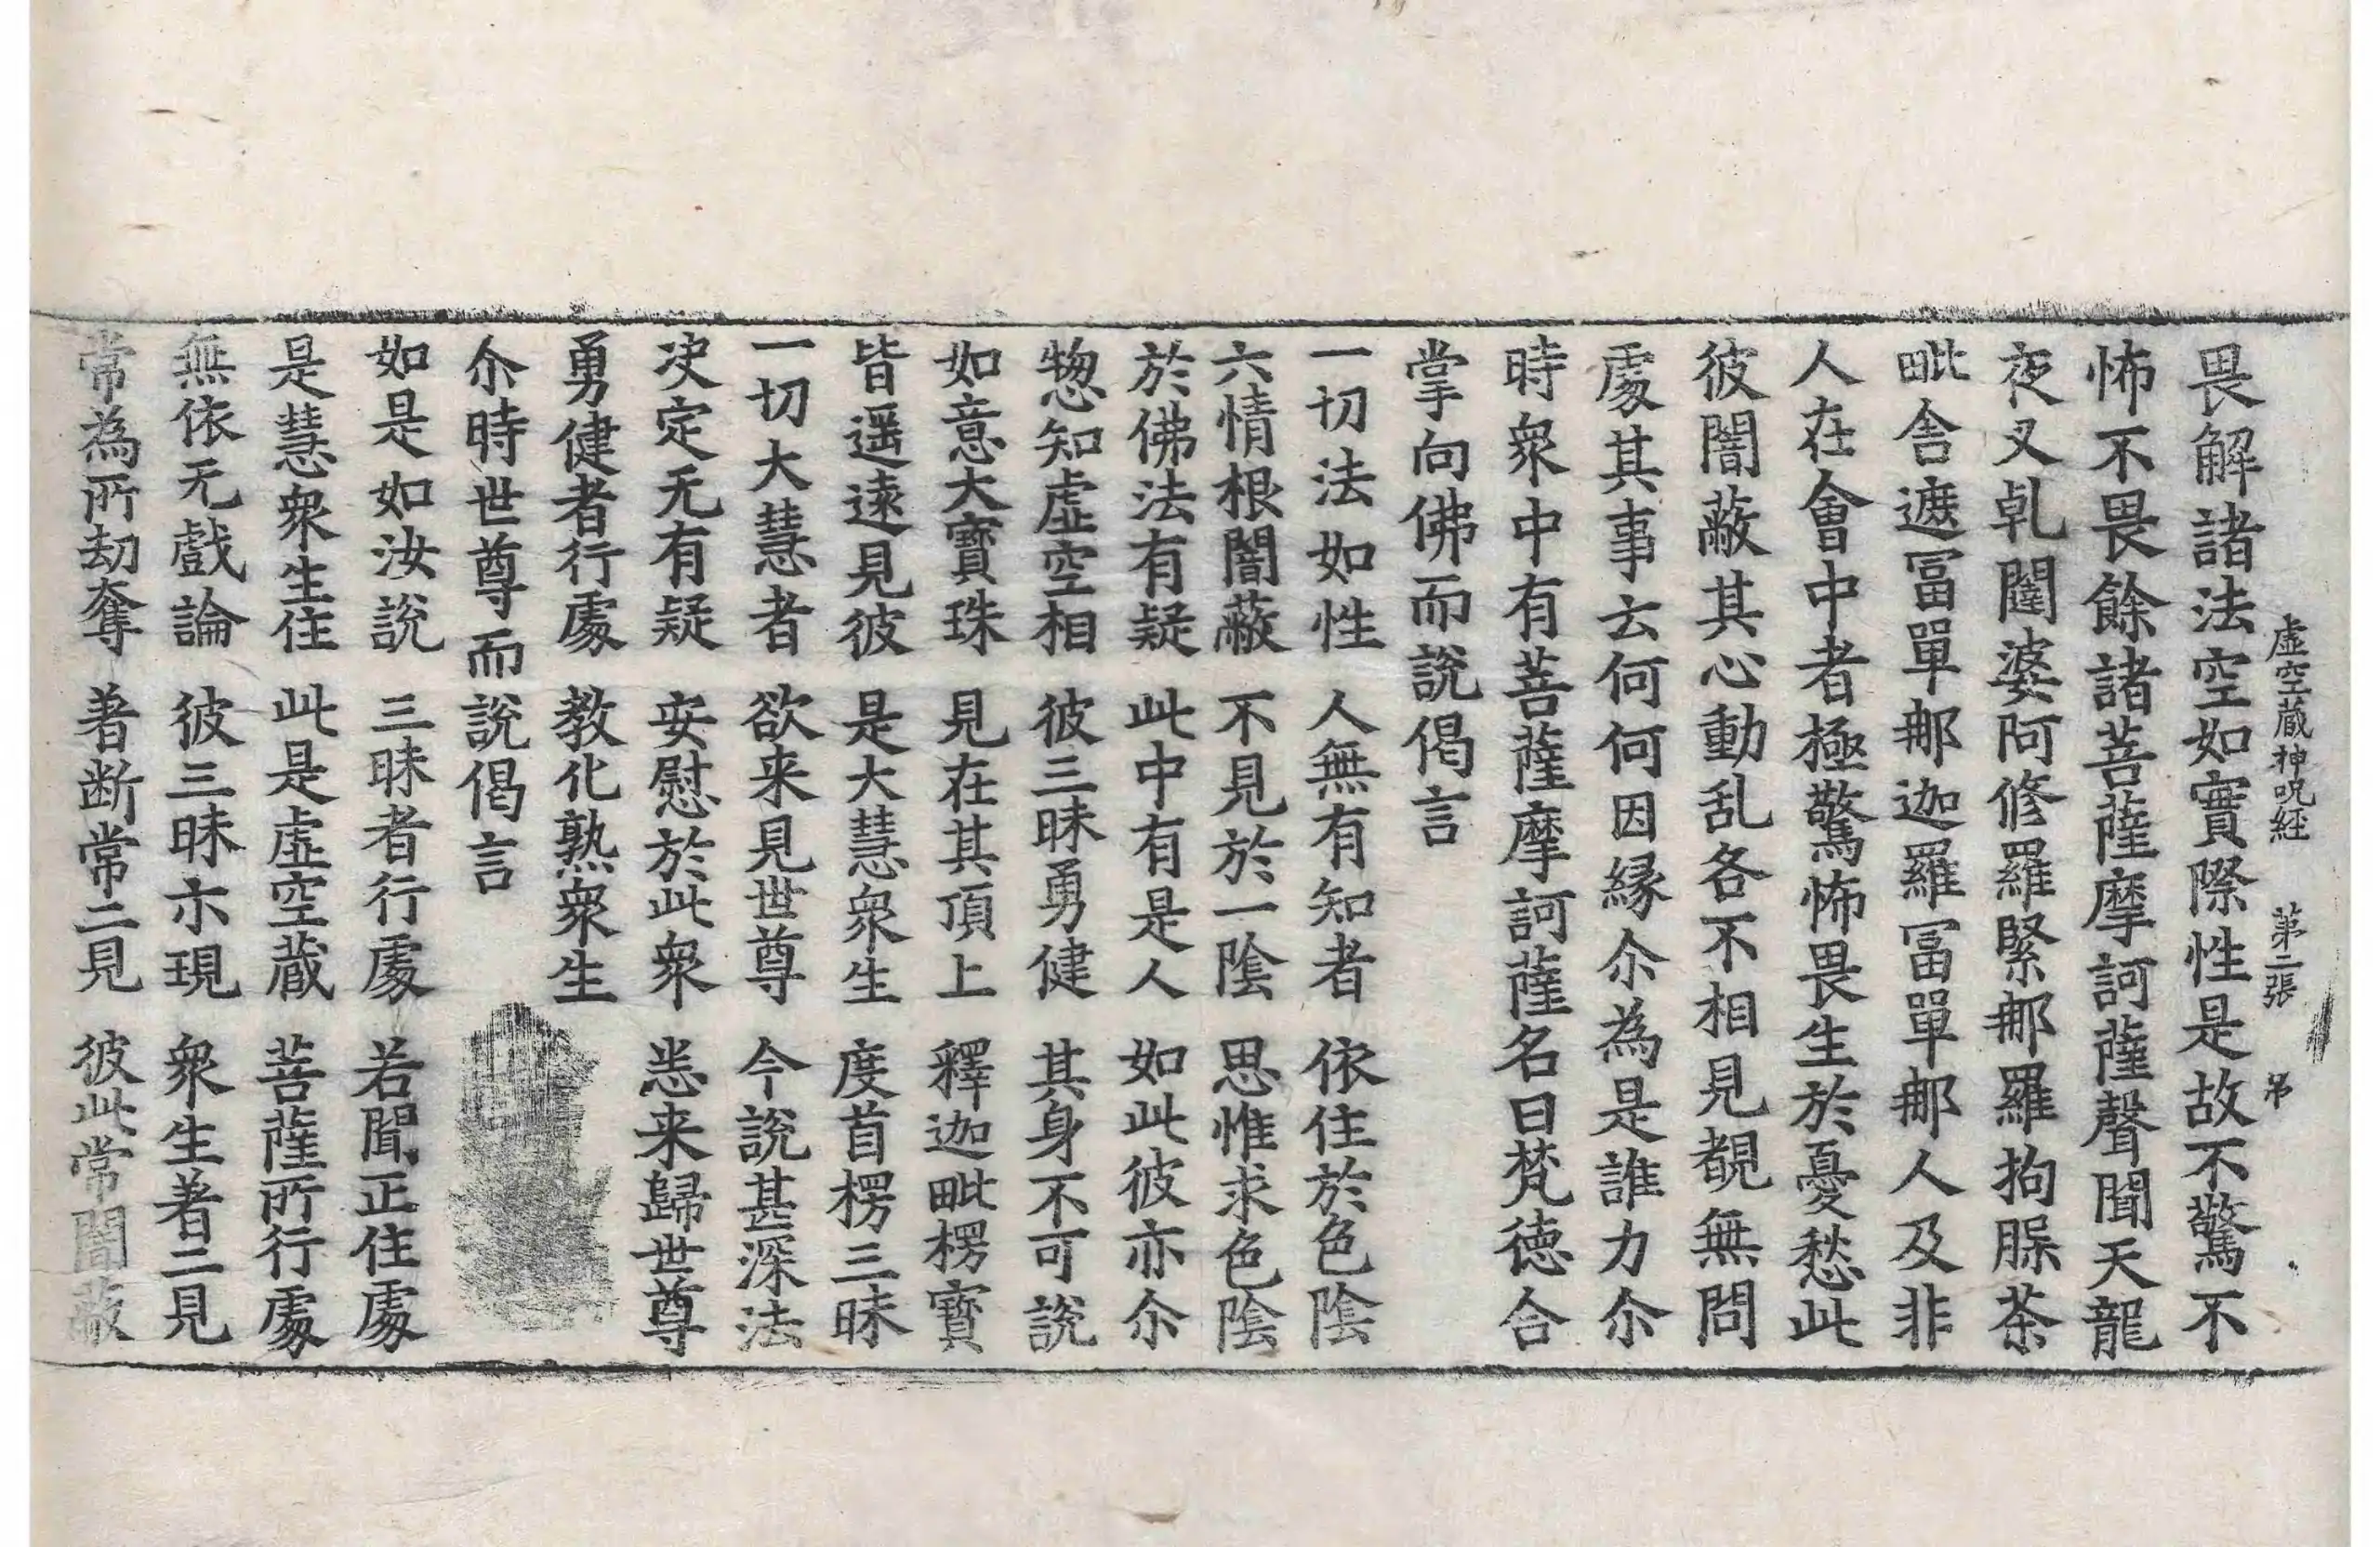 虛空蔵神呪経 第二張 吊
畏解諸法空如實際性是故不驚不
怖不畏餘諸菩薩摩訶薩聲聞天龍
夜叉乹闥婆阿修羅緊那羅拘脲茶
毗舎遮冨單那迦羅冨單那人及非
人在會中者極驚怖畏生於憂愁此
彼闇蔽其心動乱各不相見覩無問
處其事云何何因縁尒為是誰力尒
時衆中有菩薩摩訶薩名曰梵德合
掌向佛而說偈言
一切法如性 人無有知者 依住於色陰
六情根闇蔽 不見於一陰 思惟求色陰
於佛法有疑 此中有是人 如此彼亦尒
惣知虛空相 彼三昧勇健 其身不可說
如意大寶珠 見在其頂上 釋迦毗楞寶
皆遥遠見彼 是大慧衆生 度首楞三昧
一切大慧者 欲来見世尊 今說甚深法
决定无有疑 安慰於此衆 恙来歸世尊
勇健者行處 教化熟衆生
尒時世尊而說偈言
如是如汝說 三昧者行處 若聞正住處
是慧衆生住 此是虛空蔵 菩薩所行處
無依无戲論 彼三昧亦現 衆生著二見
常為所劫奪 著断常二見 彼此常闇蔽